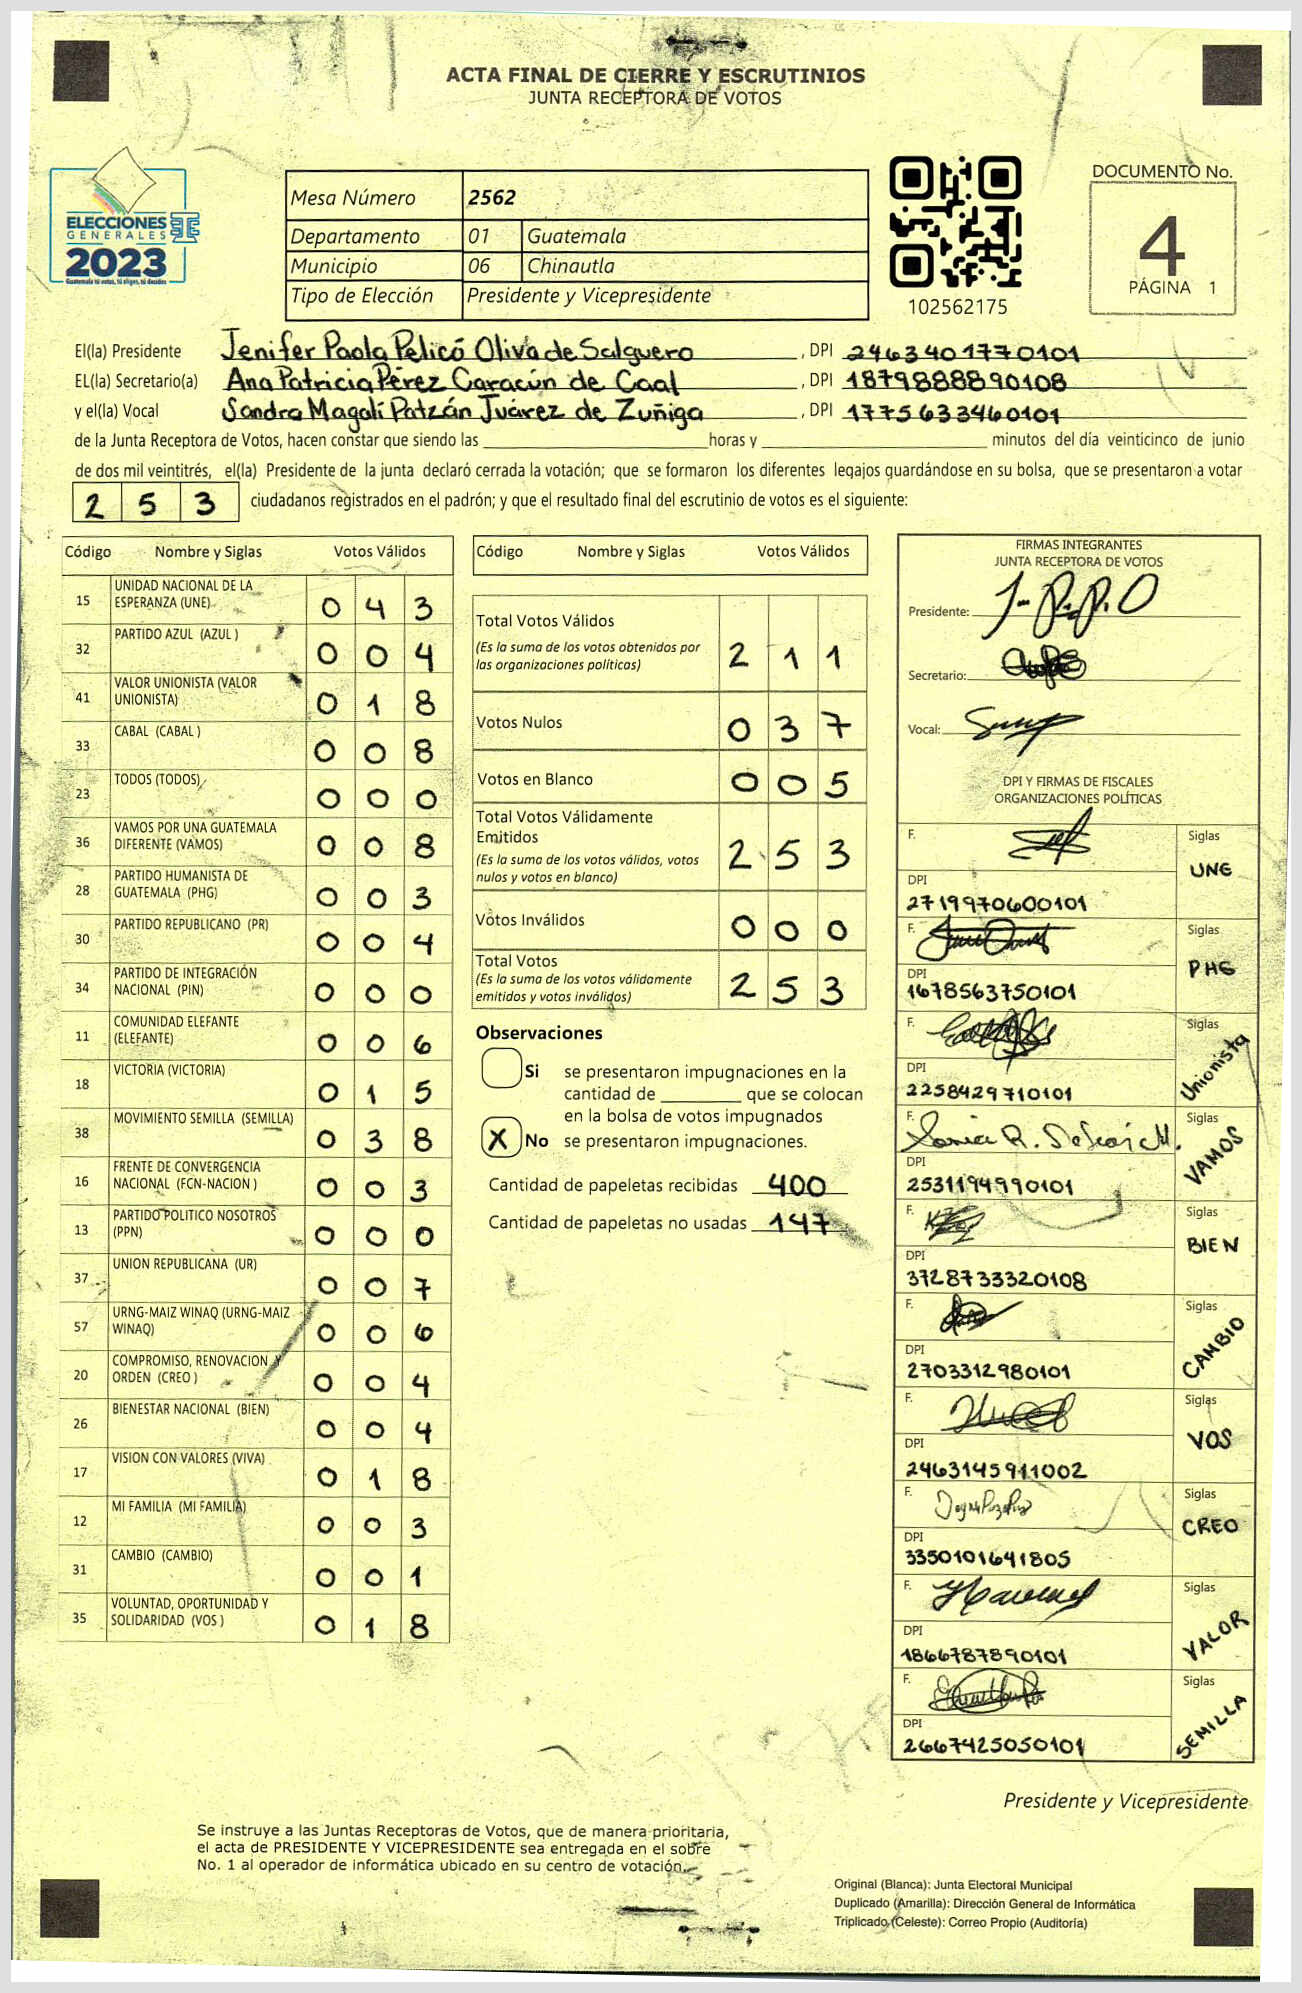 ACTA FINAL DE CIERRE Y ESCRUTINIOS
JUNTA RECEPTORA DE VOTOS
ELECCIONES
GENERALES
2023
Guatemala tú votas, tú eliges, tú decides
Mesa Número 2562
Departamento 01 Guatemala
Municipio 06 Chinautla
Tipo de Elección Presidente y Vicepresidente
102562175
DOCUMENTO No.
4
PÁGINA 1
El(la) Presidente Jenifer Paola Pelicó Oliva de Salguero, DPI 2463401770101
EL(la) Secretario(a) Ana Patricia Pérez Caracún de Caal, DPI 1879888890108
y el(la) Vocal Sandra Magalí Patzán Juárez de Zuñiga, DPI 1775633460101
de la Junta Receptora de Votos, hacen constar que siendo las ____ horas y ____ minutos del día veinticinco de junio
de dos mil veintitrés, el(la) Presidente de la junta declaró cerrada la votación; que se formaron los diferentes legajos guardándose en su bolsa, que se presentaron a votar
253 ciudadanos registrados en el padrón; y que el resultado final del escrutinio de votos es el siguiente:
Código Nombre y Siglas Votos Válidos
15 UNIDAD NACIONAL DE LA ESPERANZA (UNE) 0 4 3
32 PARTIDO AZUL (AZUL ) 0 0 4
41 VALOR UNIONISTA (VALOR UNIONISTA) 0 1 8
33 CABAL (CABAL ) 0 0 8
23 TODOS (TODOS) 0 0 0
36 VAMOS POR UNA GUATEMALA DIFERENTE (VAMOS) 0 0 8
28 PARTIDO HUMANISTA DE GUATEMALA (PHG) 0 0 3
30 PARTIDO REPUBLICANO (PR) 0 0 4
34 PARTIDO DE INTEGRACIÓN NACIONAL (PIN) 0 0 0
11 COMUNIDAD ELEFANTE (ELEFANTE) 0 0 6
18 VICTORIA (VICTORIA) 0 1 5
38 MOVIMIENTO SEMILLA (SEMILLA) 0 3 8
16 FRENTE DE CONVERGENCIA NACIONAL (FCN-NACION ) 0 0 3
13 PARTIDO POLITICO NOSOTROS (PPN) 0 0 0
37 UNION REPUBLICANA (UR) 0 0 7
57 URNG-MAIZ WINAQ (URNG-MAIZ WINAQ) 0 0 6
20 COMPROMISO, RENOVACION Y ORDEN (CREO ) 0 0 4
26 BIENESTAR NACIONAL (BIEN) 0 0 4
17 VISION CON VALORES (VIVA) 0 1 8
12 MI FAMILIA (MI FAMILIA) 0 0 3
31 CAMBIO (CAMBIO) 0 0 1
35 VOLUNTAD, OPORTUNIDAD Y SOLIDARIDAD (VOS ) 0 1 8
Código Nombre y Siglas Votos Válidos
Total Votos Válidos 2 1 1
(Es la suma de los votos obtenidos por
las organizaciones políticas)
Votos Nulos 0 3 7
Votos en Blanco 0 0 5
Total Votos Válidamente
Emitidos 2 5 3
(Es la suma de los votos válidos, votos
nulos y votos en blanco)
Votos Inválidos 0 0 0
Total Votos 2 5 3
(Es la suma de los votos válidamente
emitidos y votos inválidos)
Observaciones
Si se presentaron impugnaciones en la
cantidad de ____ que se colocan
en la bolsa de votos impugnados
X No se presentaron impugnaciones.
Cantidad de papeletas recibidas 400
Cantidad de papeletas no usadas 147
FIRMAS INTEGRANTES
JUNTA RECEPTORA DE VOTOS
Presidente:
Secretario:
Vocal:
DPI Y FIRMAS DE FISCALES
ORGANIZACIONES POLÍTICAS
F. Siglas UNE
DPI 2719970600101
F. Siglas PHG
DPI 1678563750101
F. Siglas Unionista
DPI 2258429710101
F. Siglas VAMOS
DPI 2531194990101
F. Siglas BIEN
DPI 3728733320108
F. Siglas CAMBIO
DPI 2703312980101
F. Siglas VOS
DPI 2463145911002
F. Siglas CREO
DPI 3350101641805
F. Siglas VALOR
DPI 1866787890101
F. Siglas SEMILLA
DPI 2667425050101
Presidente y Vicepresidente
Se instruye a las Juntas Receptoras de Votos, que de manera prioritaria,
el acta de PRESIDENTE Y VICEPRESIDENTE sea entregada en el sobre
No. 1 al operador de informática ubicado en su centro de votación.
Original (Blanca): Junta Electoral Municipal
Duplicado (Amarilla): Dirección General de Informática
Triplicado (Celeste): Correo Propio (Auditoría)